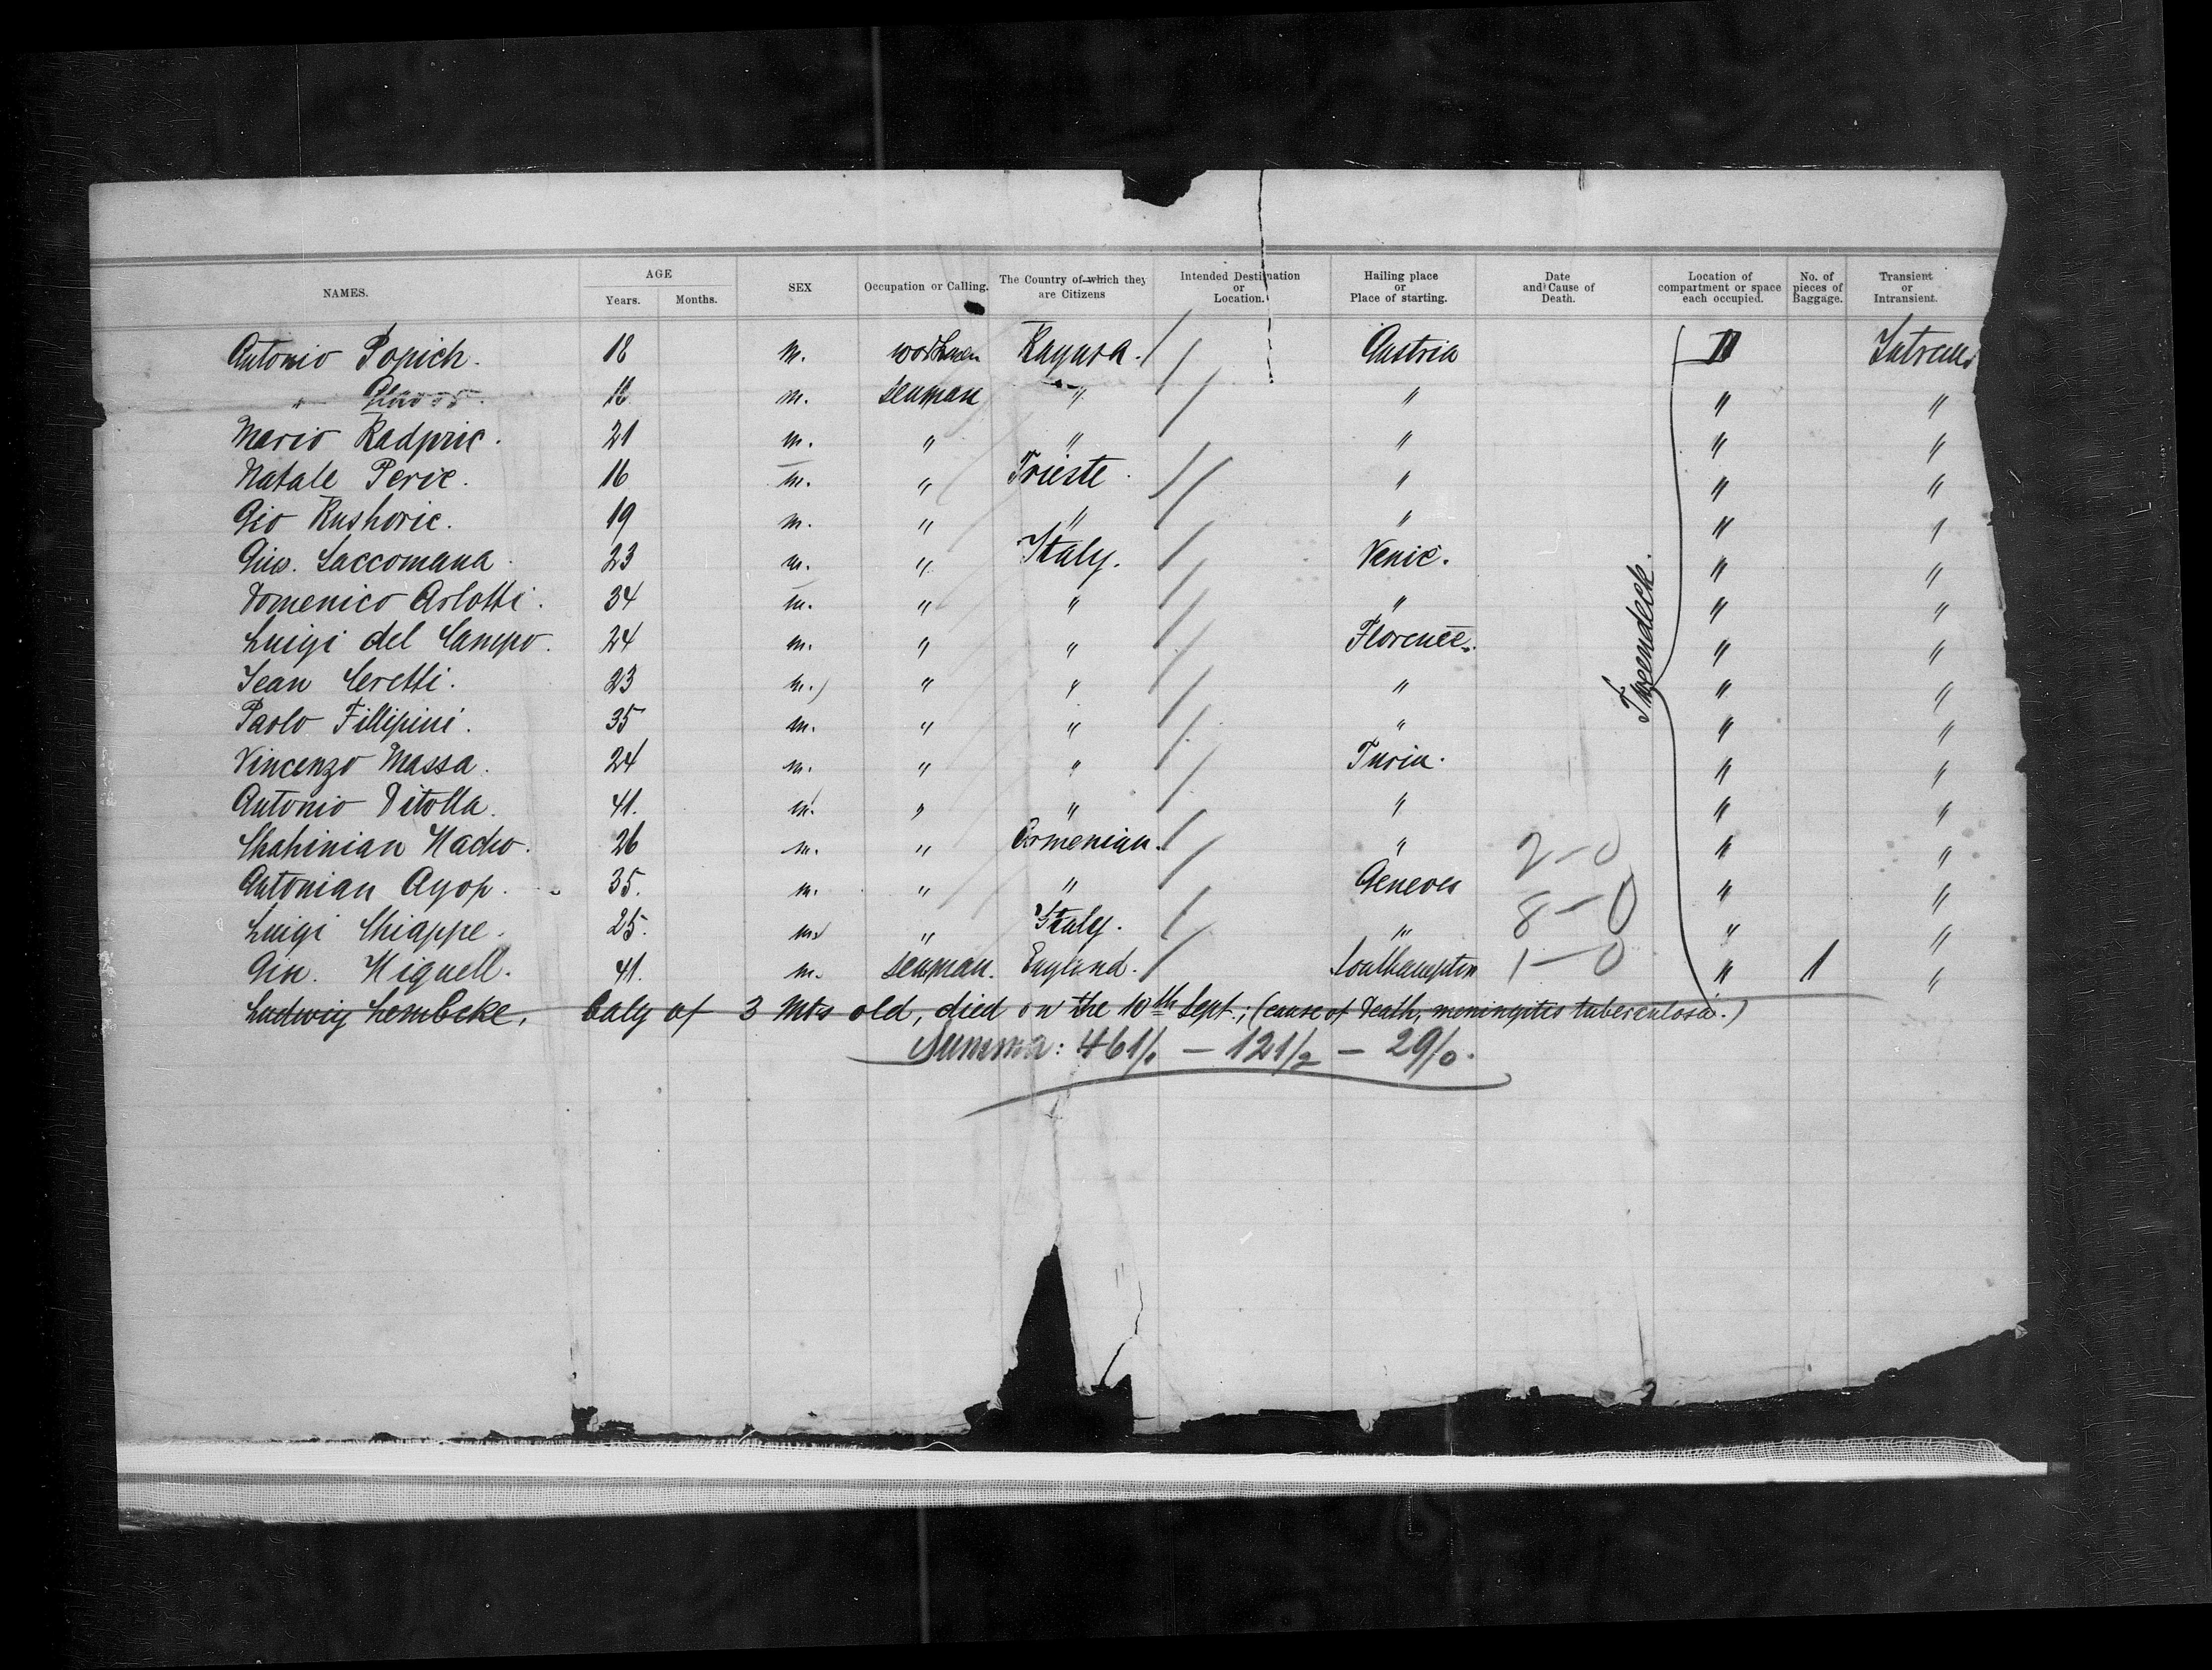 NAMES. AGE Years. Months. SEX Occupation or Calling. The Country of which they are Citizens Intended Destination or Location. Hailing place or Place of starting. Date and Cause of Death. Location of compartment or space each occupied. No. of pieces of Baggage. Transient or Intransient.
Antonio Popich. 18 m. workmen Ragusa. Austria II
" 18 m. seaman " " " "
Mario Radpric. 21 m. " " " " "
Natale Peric. 16 m. " Trieste. " " "
Gio Rushoric. 19 m. " " " " "
Gius. Saccomana. 23 m. " Italy. Venic. " "
Domenico Arlotti. 34 m. " " " " "
Luigi del Campo. 24 m. " " Florence. " "
Jean Ceretti. 23 m. " " " " "
Paolo Fillipini. 35 m. " " " " "
Vincenzo Massa. 24 m. " " Turin. " "
Antonio Ditolla. 41. m. " " " " "
Chahinian Nacho. 26 m. " Armenian. " 2-0 " "
Antonian Agop. 35. m. " " Geneves 8-0 " "
Luigi Chiappe. 25. m. " Italy. " " "
Gin. Niquell. 41. m. seaman. England. Southampton 1-0 " 1 "
Tweendeck.
Ludwig Lembcke, baby of 3 mts old, died on the 10th Sept.; (cause of death, meningitis tuberculosa.)
Summa: 461/1 - 121/2 - 29/0.